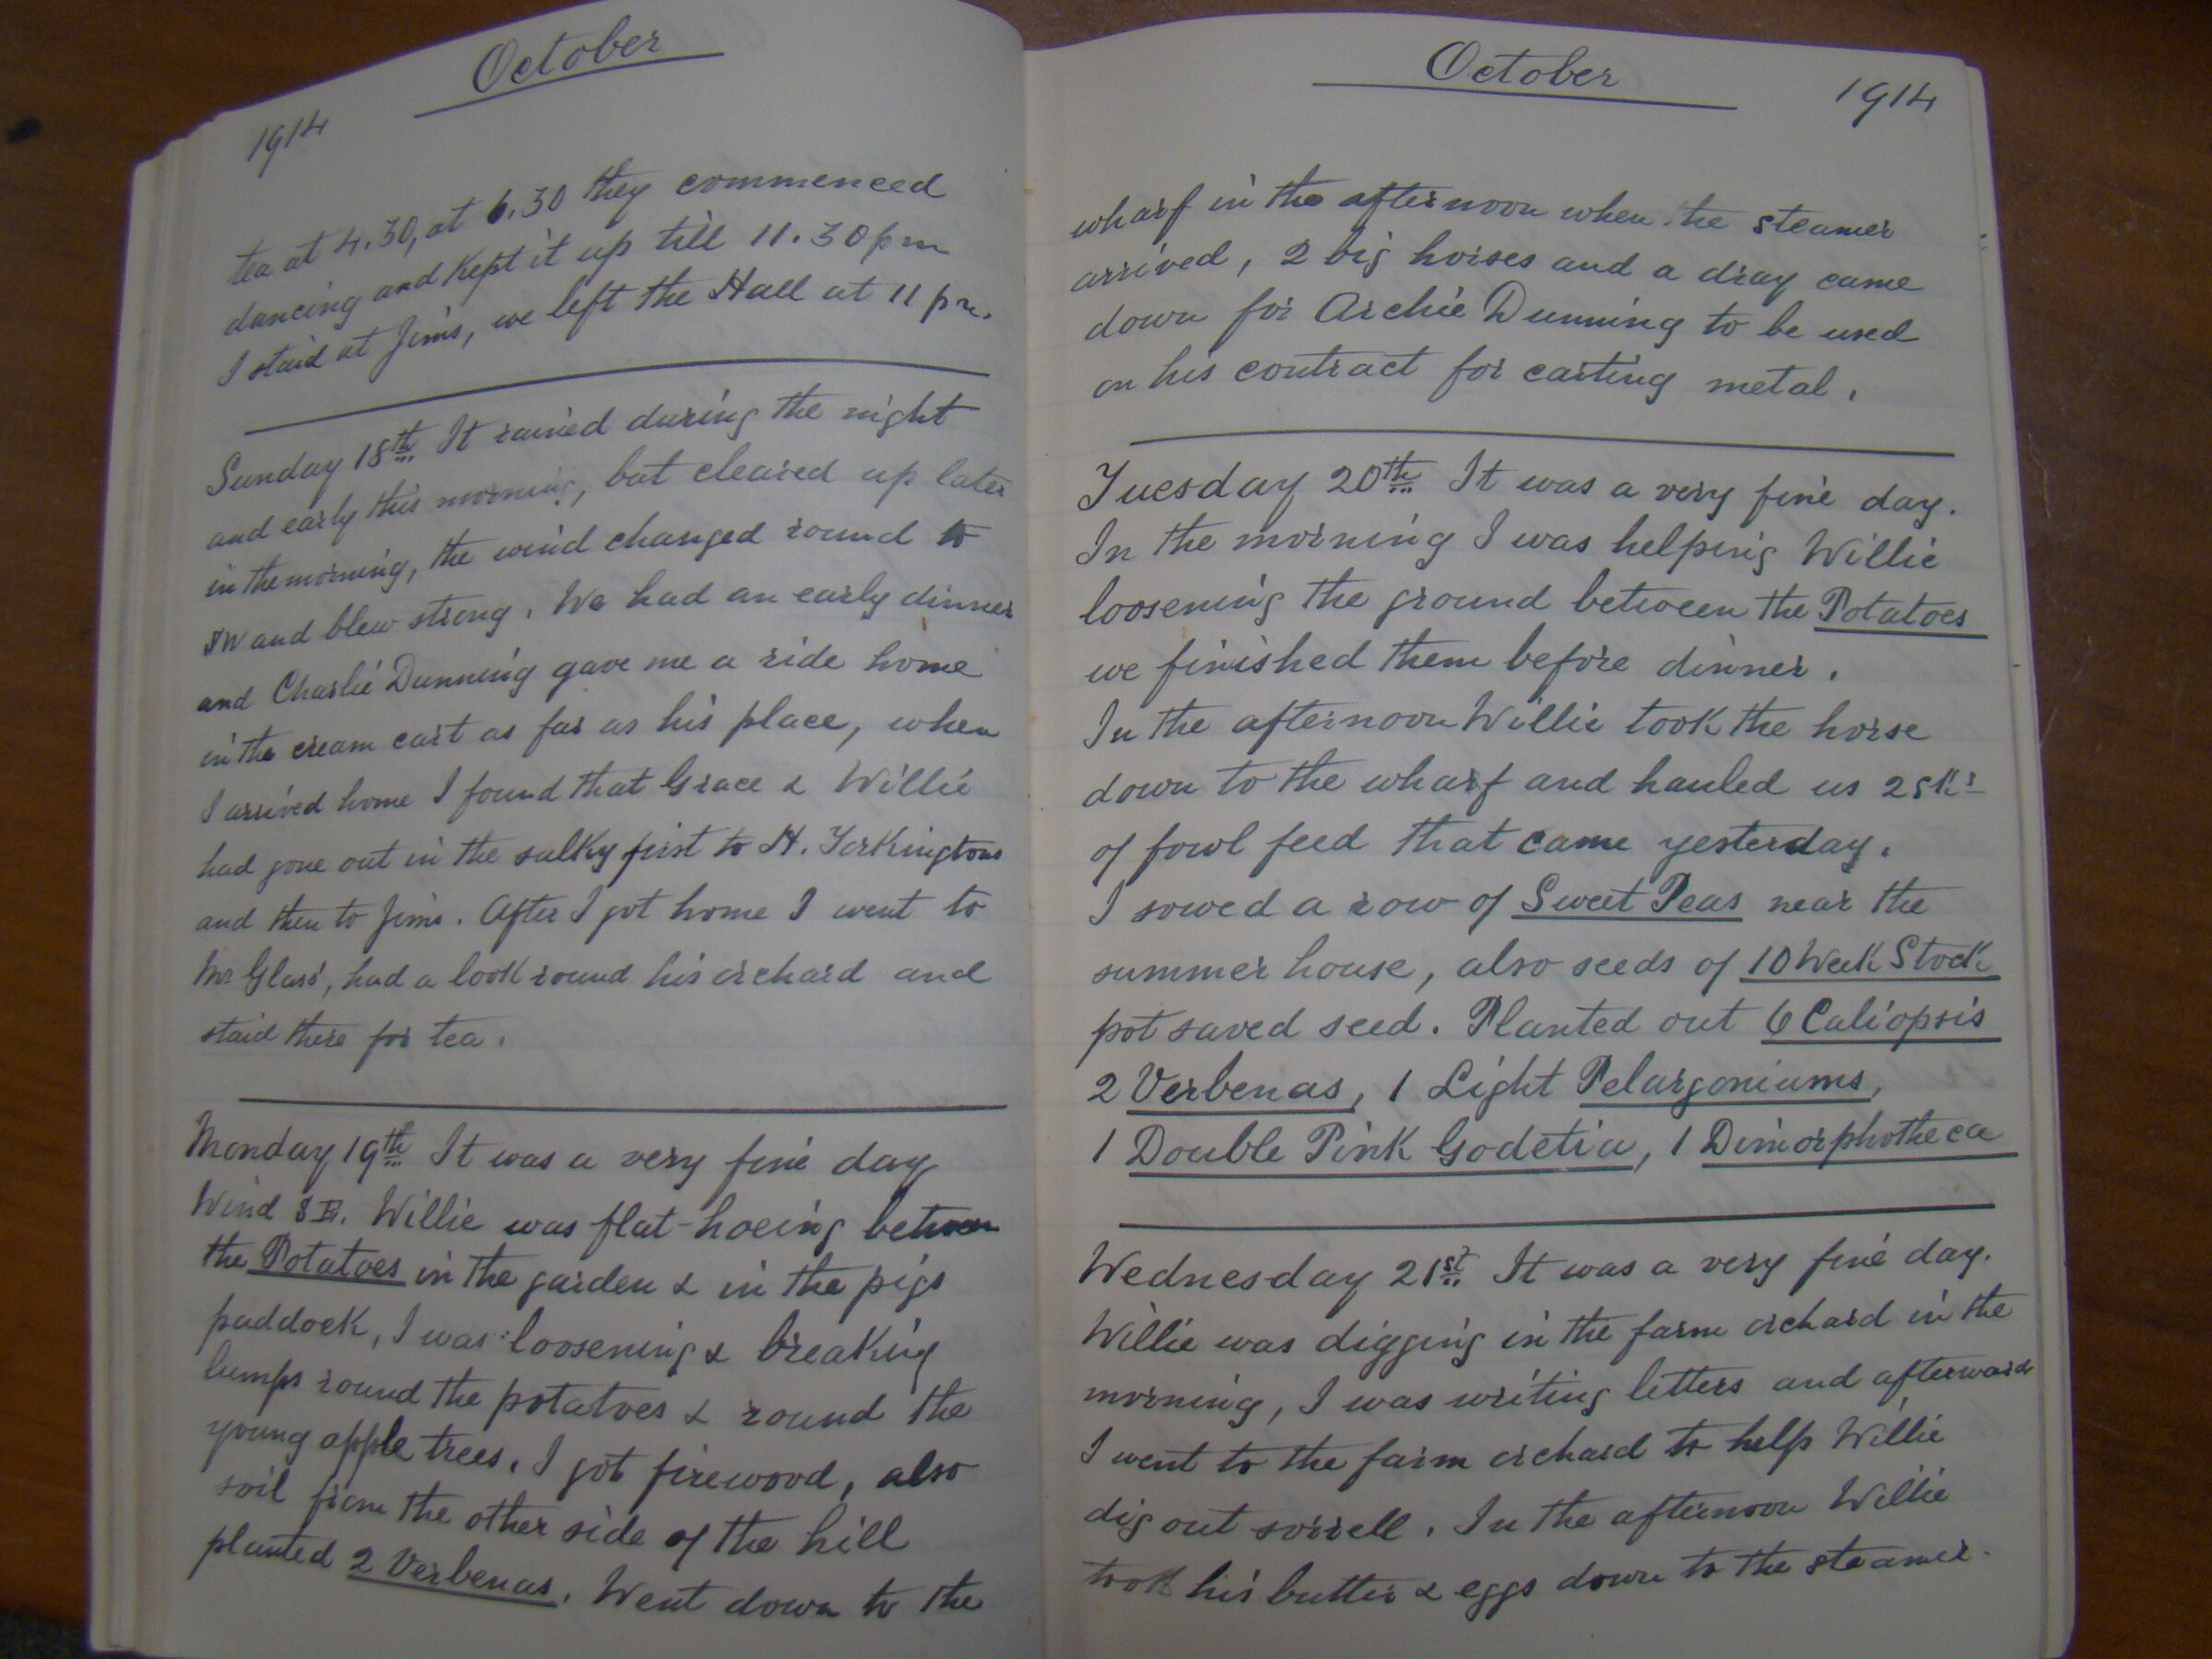 October
1914
tea at 4.30, at 6.30 they commenced
dancing and Kept it up till 11.30 pm
I staid at Jim's, we left the Hall at 11 pm.
Sunday 18th It rained during the night
and early this morning, but cleared up later
in the morning, the wind changed round to
SW and blew strong. We had an early dinner
and Charlie Dunning gave me a ride home
in the cream cart as far as his place, when
I arrived home I found that Grace & Willie
had gone out in the sulky first to H. Torkingtons
and then to Jims. After I got home I went to
Mr Glass', had a look round his orchard and
staid there for tea.
Monday 19th It was a very fine day
Wind SE. Willie was flat-hoeing between
the Potatoes in the garden & in the pigs
paddock, I was loosening & breaking
lumps round the potatoes & round the
young apple trees. I got firewood, also
soil from the other side of the hill
planted 2 Verbenas. Went down to the
October
1914
wharf in the afternoon when the steamer
arrived, 2 big horses and a dray came
down for Archie Dunning to be used
on his contract for carting metal.
Tuesday 20th It was a very fine day.
In the morning I was helping Willie
loosening the ground between the Potatoes
we finished them before dinner.
In the afternoon Willie took the horse
down to the wharf and hauled us 2 sks
of fowl feed that came yesterday.
I sowed a row of Sweet Peas near the
summer house, also seeds of 10 Week Stock
pot saved seed. Planted out 6 Caliopsis
2 Verbenas, 1 Light Pelargoniums,
1 Double Pink Godetia, 1 Dimorphotheca
Wednesday 21st It was a very fine day.
Willie was digging in the farm orchard in the
morning, I was writing letters and afterward
I went to the farm orchard to help Willie
dig out sorrell. In the afternoon Willie
took his butter & eggs down to the steamer.